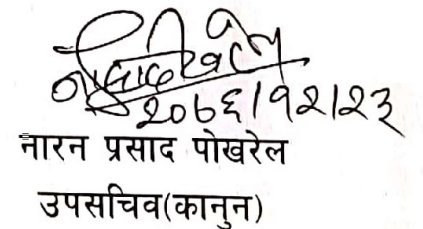 २०७६।१२।२३
नारन प्रसाद पोखरेल
उपसचिव(कानुन)